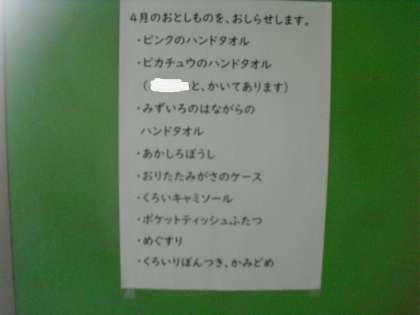 4月のおとしものを、おしらせします。
・ピンクのハンドタオル
・ピカチュウのハンドタオル
(と、かいてあります)
・みずいろのはながらの
ハンドタオル
・あかしろぼうし
・おりたたみがさのケース
・くろいキャミソール
・ポケットティッシュふたつ
・めぐすり
・くろいりぼんつき、かみどめ